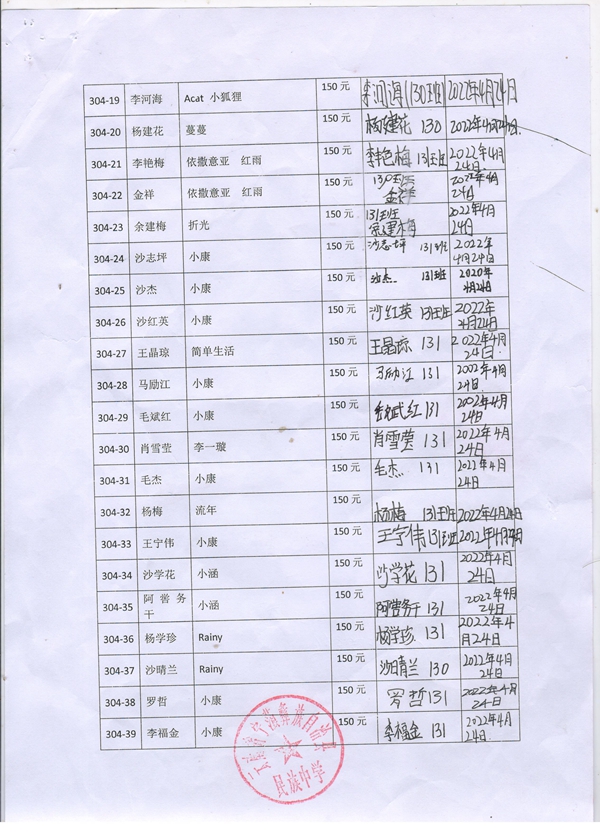 304-19 李河海 Acat 小狐狸 150 元 李河海 130班 2022年4月24日
304-20 杨建花 蔓蔓 150 元 杨建花 130 2022年4月24日
304-21 李艳梅 依撒意亚 红雨 150 元 李艳梅 131班 2022年4月24日
304-22 金祥 依撒意亚 红雨 150 元 130班 金祥 2022年4月24日
304-23 余建梅 折光 150 元 131班 余建梅 2022年4月24日
304-24 沙志坪 小康 150 元 沙志坪 131班 2022年4月24日
304-25 沙杰 小康 150 元 沙杰 131班 2020年4月24日
304-26 沙红英 小康 150 元 沙红英 131班 2022年4月24日
304-27 王晶琼 简单生活 150 元 王晶琼 131 2022年4月24日
304-28 马励江 小康 150 元 马励江 131 2002年4月24日
304-29 毛斌红 小康 150 元 131 2002年4月24日
304-30 肖雪莹 李一璇 150 元 肖雪莹 131 2022年4月24日
304-31 毛杰 小康 150 元 毛杰 131 2022年4月24日
304-32 杨梅 流年 150 元 杨梅 131班 2022年4月24日
304-33 王宁伟 小康 150 元 王宁伟 131班 2022年4月24日
304-34 沙学花 小涵 150 元 沙学花 131 2022年4月24日
304-35 阿喾务干 小涵 150 元 阿喾务干 131 2022年4月24日
304-36 杨学珍 Rainy 150 元 杨学珍 131 2022年4月24日
304-37 沙晴兰 Rainy 150 元 沙晴兰 130 2022年4月24日
304-38 罗哲 小康 150 元 罗哲 131 2022年4月24日
304-39 李福金 小康 150 元 李福金 131 2022年4月24日
云南省宁蒗彝族自治县
民族中学